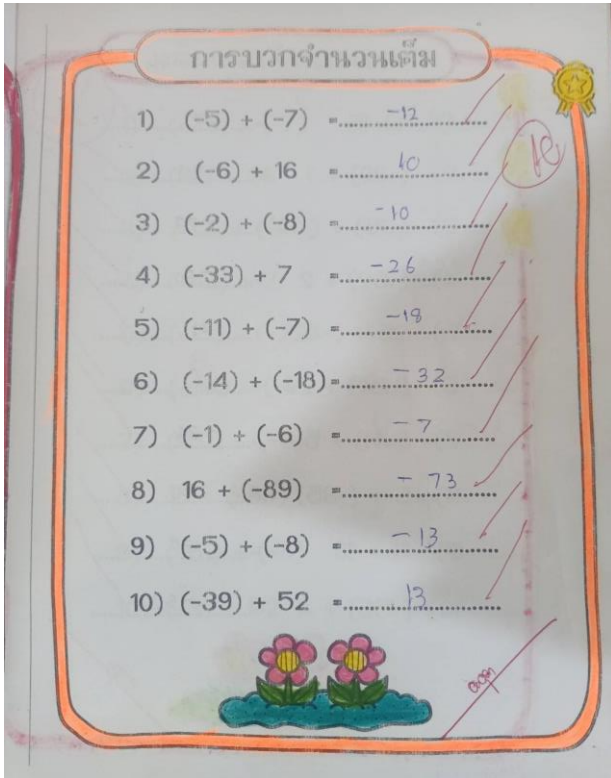 การบวกจำนวนเต็ม
1) (-5) + (-7) =........-12........
2) (-6) + 16 =........10........
3) (-2) + (-8) =........-10........
4) (-33) + 7 =........-26........
5) (-11) + (-7) =........-18........
6) (-14) + (-18)=........-32........
7) (-1) + (-6) =........-7........
8) 16 + (-89) =........-73........
9) (-5) + (-8) =........-13........
10) (-39) + 52 =........13........